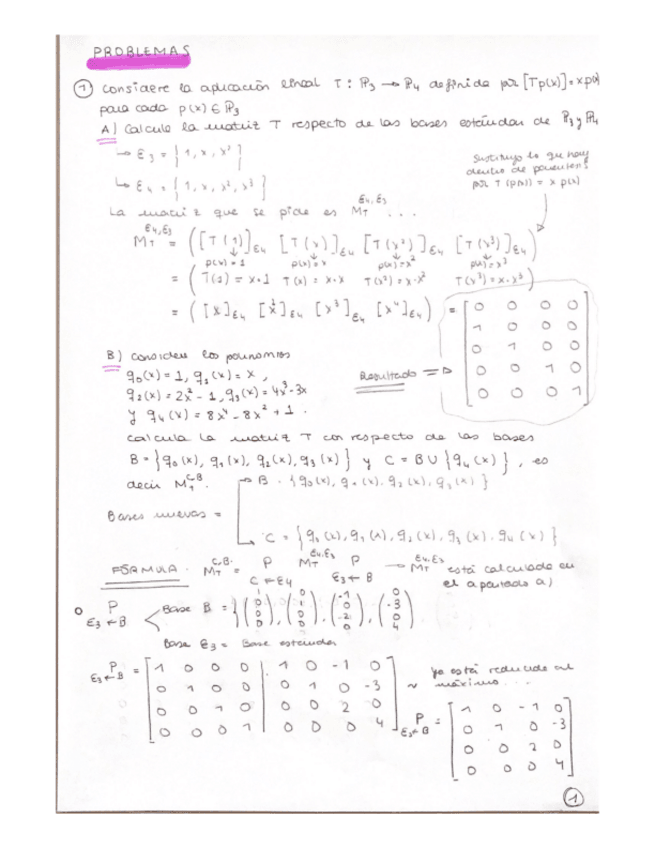 PROBLEMAS
① Considere la aplicación lineal T: P₃ → P₄ definida por [Tp(x)]=x p(x)
para cada p(x) ∈ P₃
A) Calcula la matriz T respecto de las bases estándar de P₃ y P₄
↳ ε₃ = {1, x, x²}
↳ ε₄ = {1, x, x², x³}
Sustituyo lo que hay
dentro de paréntesis
por T(p(x)) = x p(x)
La matriz que se pide es M_T^{ε₄,ε₃} ...
M_T^{ε₄,ε₃} = ([T(1)]_{ε₄} [T(x)]_{ε₄} [T(x²)]_{ε₄} [T(x³)]_{ε₄})
p(x)=1 p(x)=x p(x)=x² p(x)=x³
= (T(1)=x·1 T(x)=x·x T(x²)=x·x² T(x³)=x·x³)
= ([x]_{ε₄} [x²]_{ε₄} [x³]_{ε₄} [x⁴]_{ε₄}) =
0 0 0 0
1 0 0 0
0 1 0 0
0 0 1 0
0 0 0 1
Resultado ⇒
B) Considera los polinomios
q₀(x) = 1, q₁(x) = x,
q₂(x) = 2x² - 1, q₃(x) = 4x³-3x
y q₄(x) = 8x⁴ - 8x² + 1.
calcula la matriz T con respecto de las bases
B = {q₀(x), q₁(x), q₂(x), q₃(x)} y C = B ∪ {q₄(x)}, es
decir M_T^{C,B}.
B = {q₀(x), q₁(x), q₂(x), q₃(x)}
Bases nuevas =
C = {q₀(x), q₁(x), q₂(x), q₃(x), q₄(x)}
FÓRMULA · M_T^{C,B} = P_{C←ε₄} M_T^{ε₄,ε₃} P_{ε₃←B} → M_T^{ε₄,ε₃} está calculado en
el apartado a)
o P_{ε₃←B}
Base B = {(1 0 0 0), (0 1 0 0), (-1 0 -2 0), (0 -3 0 4)}
Base ε₃ = Base estándar
P_{ε₃←B} =
1 0 0 0 | 1 0 -1 0
0 1 0 0 | 0 1 0 -3
0 0 1 0 | 0 0 2 0
0 0 0 1 | 0 0 0 4
~
ya está reducida al
máximo...
P_{ε₃←B} =
1 0 -1 0
0 1 0 -3
0 0 2 0
0 0 0 4
①